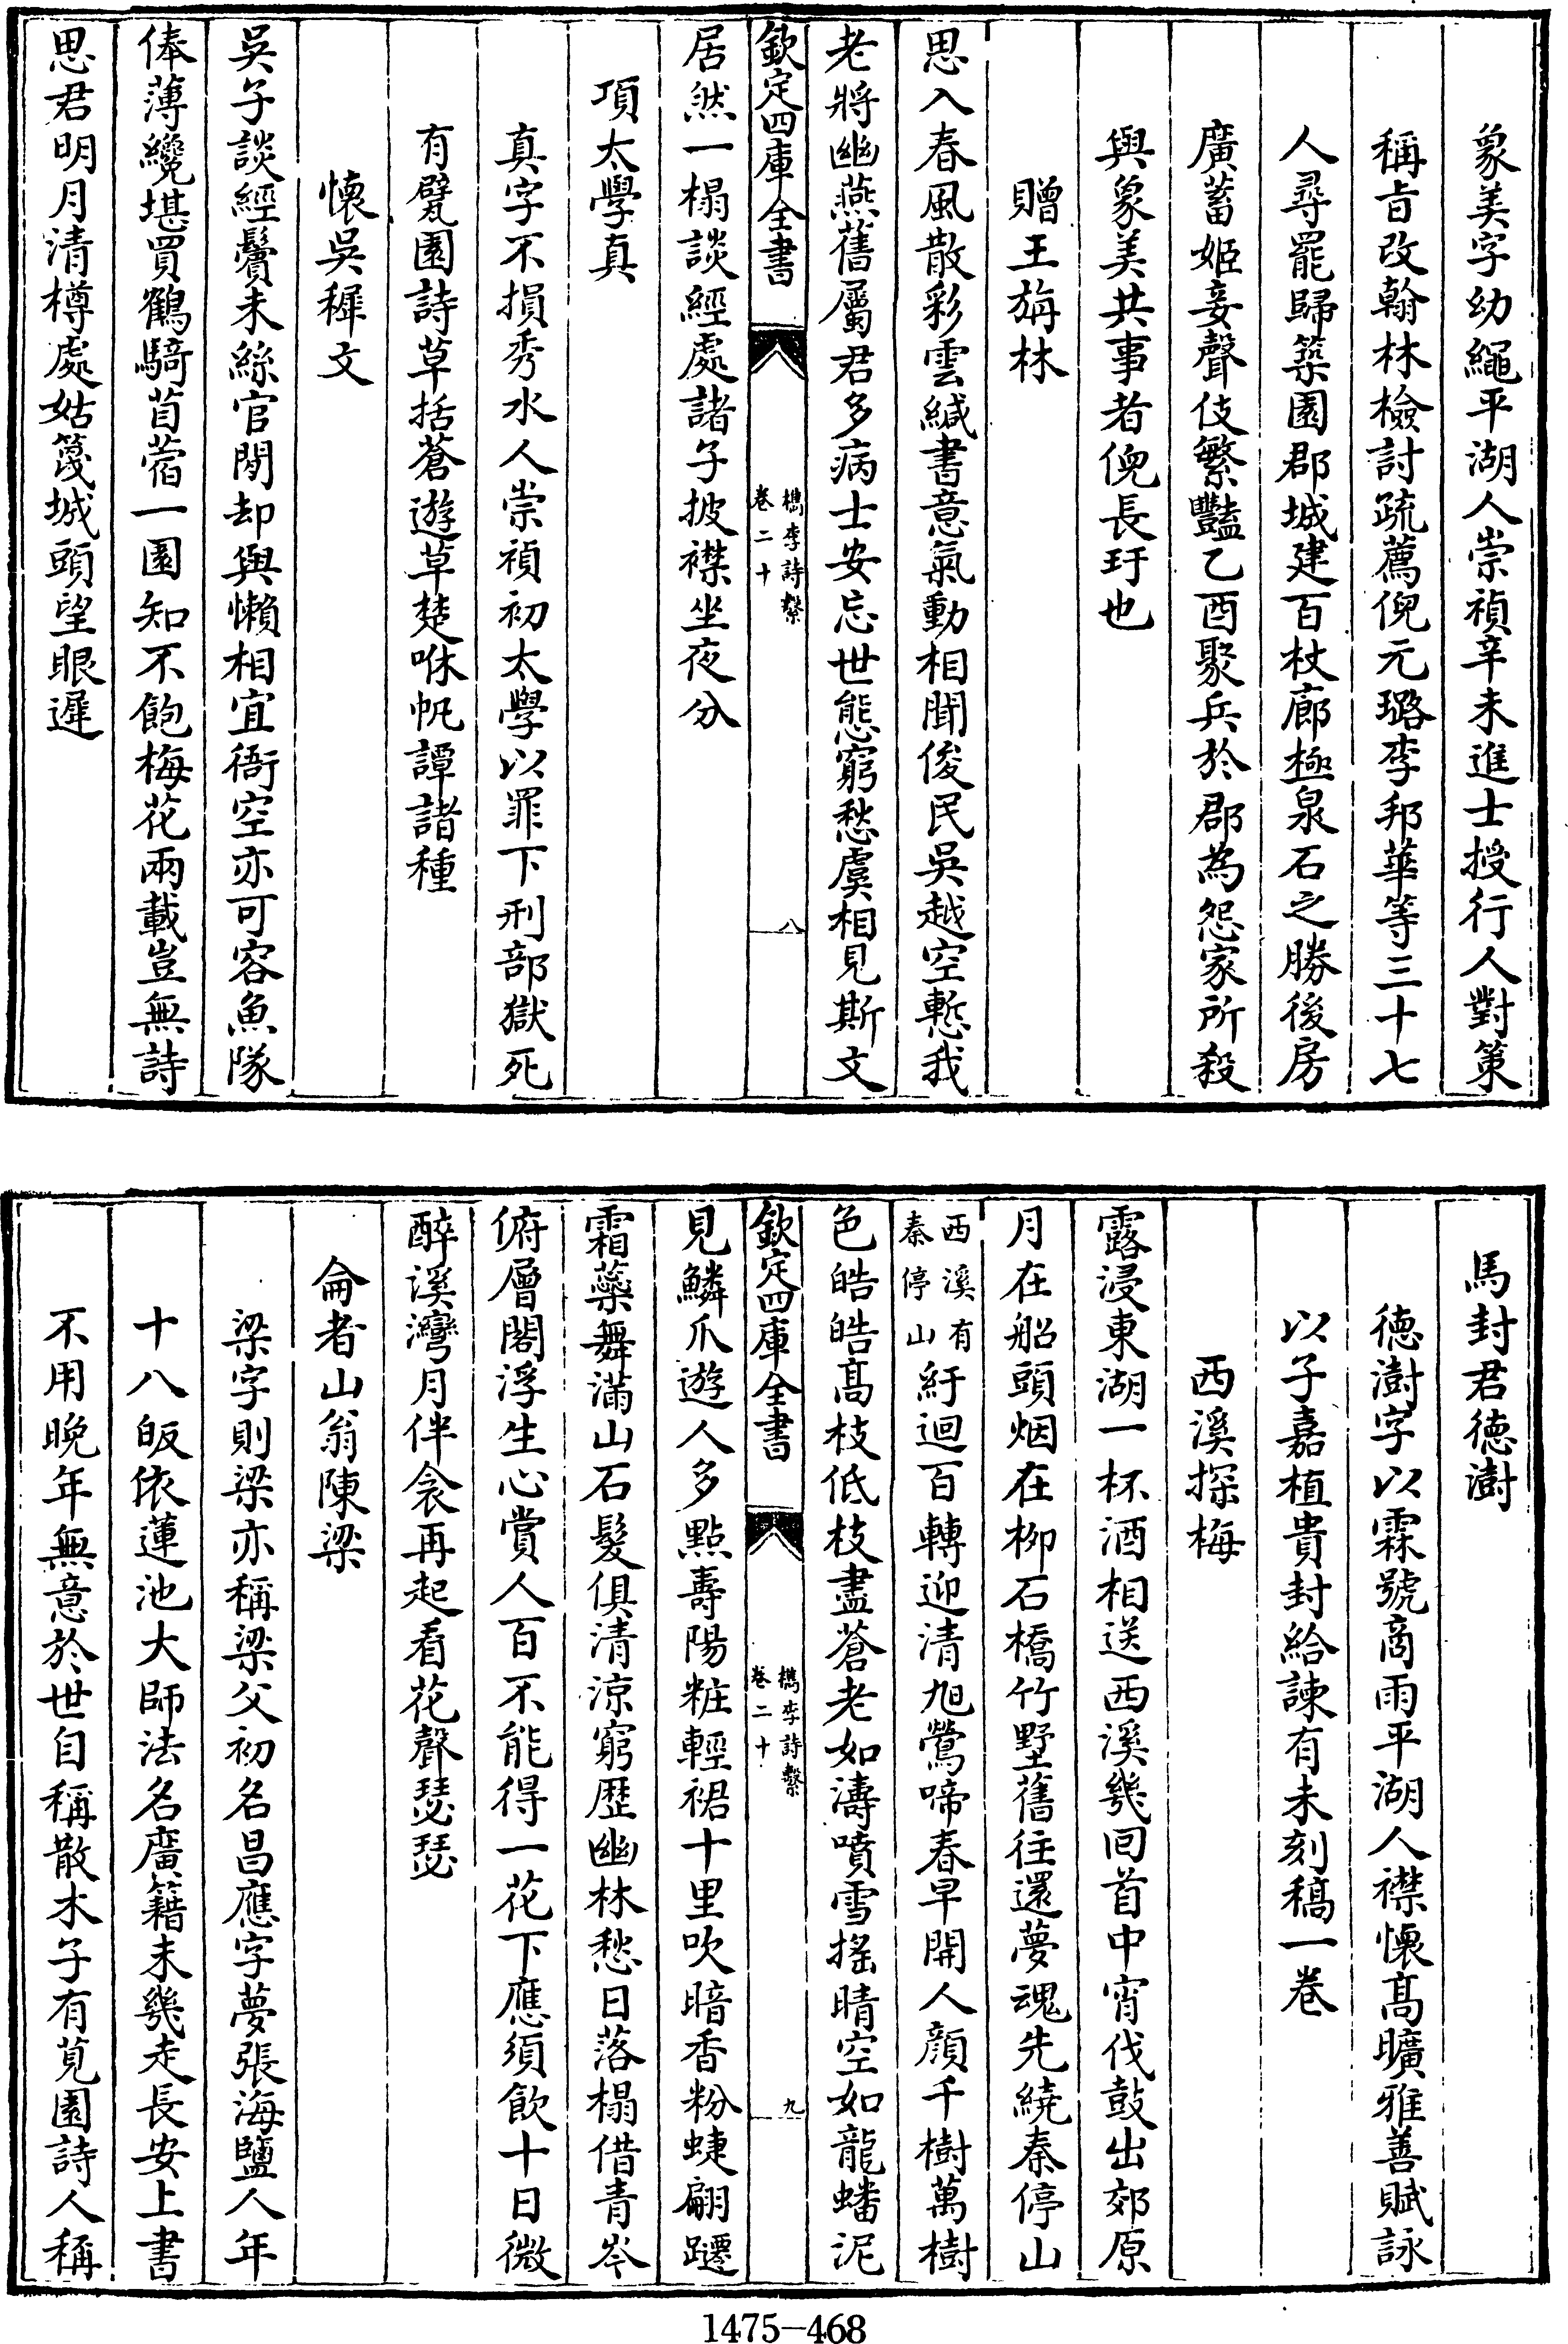 象美字幼繩平湖人崇禎辛未進士授行人對策
稱旨改翰林檢討疏薦倪元璐李邦華等三十七
人尋罷歸築園郡城建百杖廊極泉石之勝後房
廣蓄姬妾聲伎繁豔乙酉聚兵於郡為怨家所殺
與象美共事者倪長玗也
贈王旃林
思入春風散彩雲緘書意氣動相聞俊民吳越空慙我
老將幽燕舊屬君多病士安忘世態窮愁虞相見斯文
欽定四庫全書
檇李詩繫
卷二十
八
居然一榻談經處諸子披襟坐夜分
項太學真
真字不損秀水人崇禎初太學以罪下刑部獄死
有甓園詩草括蒼遊草楚咻帆譚諸種
懷吳穉文
吳子談經鬢未絲官閒却與懶相宜衙空亦可容魚隊
俸薄纔堪買鶴騎苜蓿一園知不飽梅花兩載豈無詩
思君明月清樽處姑篾城頭望眼遲
馬封君德澍
德澍字以霖號商雨平湖人襟懷高曠雅善賦詠
以子嘉植貴封給諫有未刻稿一卷
西溪探梅
露浸東湖一杯酒相送西溪幾回首中宵伐鼓出郊原
月在船頭烟在柳石橋竹墅舊往還夢魂先繞秦停山
西溪有
秦停山
紆迴百轉迎清旭鶯啼春早開人顏千樹萬樹
色皓皓高枝低枝盡蒼老如濤噴雪搖晴空如龍蟠泥
欽定四庫全書
檇李詩繫
卷二十
九
見鱗爪遊人多點壽陽粧輕裙十里吹暗香粉蜨翩躚
霜蘂舞滿山石髮俱清涼窮歷幽林愁日落榻借青岑
俯層閣浮生心賞人百不能得一花下應須飲十日微
醉溪灣月伴衾再起看花聲瑟瑟
侖者山翁陳梁
梁字則梁亦稱梁父初名昌應字夢張海鹽人年
十八皈依蓮池大師法名廣籍未幾走長安上書
不用晚年無意於世自稱散木子有莧園詩人稱
1475-468